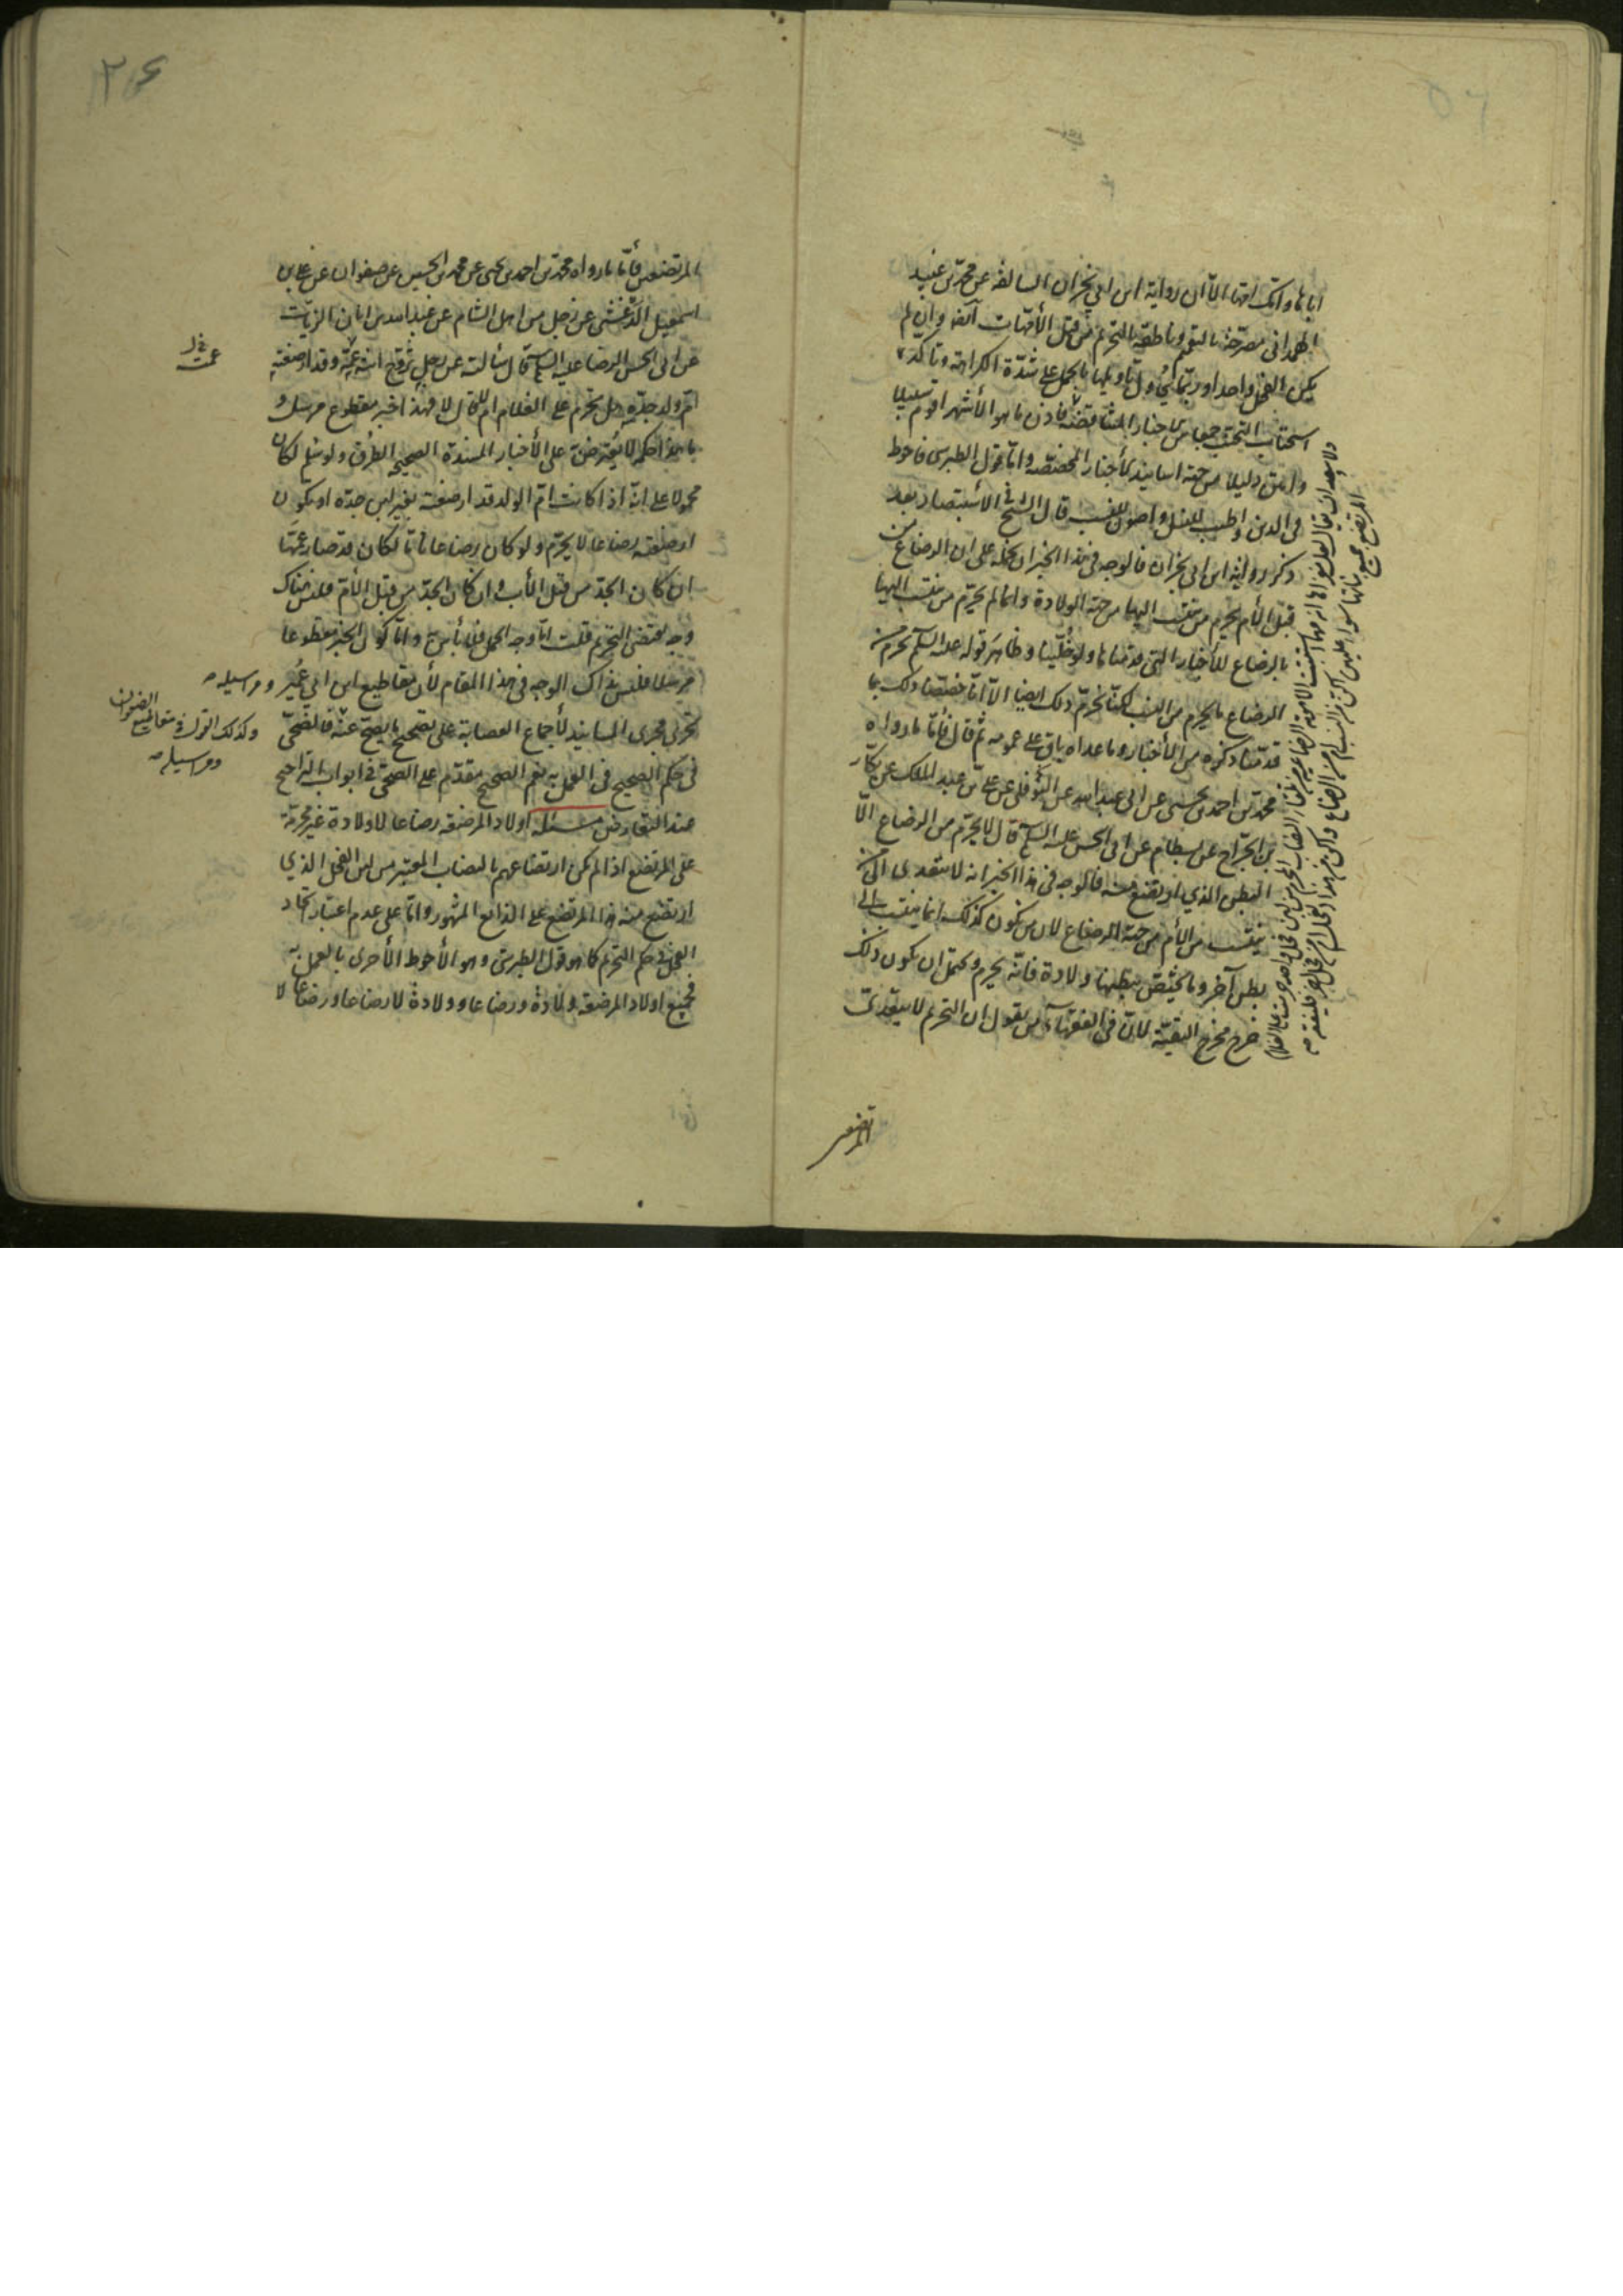 اباها وانك امها الا ان رواية ابن ابي نجران السالفة عن محمد بن عبيد
الهمداني مصرحة بالتعميم وناطقة بالتحريم من قبل الأمهات آنفة وان لم
يكن الفحل واحدا وربما يؤول تأويلها بالحمل على شدة الكراهة وتأكد
استحباب التجنب جمعا بين الأخبار المتناقضة فاذن ما هو الأشهر اقوم سبيلا
وامتن دليلا من جهة اسانيد الأخبار المخصصة واما قول الطبرسي فاحوط
في الدين واطيب للنسل واصون للنسب قال الشيخ في الاستبصار بعد
ذكر رواية ابن ابي نجران فالوجه في هذا الخبر ان نحمله على ان الرضاع من
قبل الأم يحرم من ينتسب اليها من جهة الولادة وانما لم يحرم من ينتسب اليها
بالرضاع للأخبار التي قدمناها ولو خلينا وظاهر قوله عليه السلم يحرم من
الرضاع ما يحرم من النسب لكنا نحرم ذلك ايضا الا انا خصصنا ذلك بما
قدمنا ذكره من الأخبار وما عداه باق على عمومه ثم قال فأما ما رواه
محمد بن احمد بن يحيى عن ابي عبد الله عن النوفلي عن علي بن عبد الملك عن بكار
بن الجراح عن بسطام عن ابي الحسن عليه السلم قال لا يحرم من الرضاع الا
البطن الذي ارتضع منه فالوجه في هذا الخبر انه لا يتعدى الى من
ينتسب من الأم من جهة الرضاع لان من يكون كذلك انما ينتسب الى
بطن آخر وما يختص ببطنها ولادة فانه يحرم ويحتمل ان يكون ذلك
خرج مخرج التقية لان في الفقهاء من يقول ان التحريم لا يتعدى
المرتضعين
المرتضعين فأما ما رواه محمد بن احمد بن يحيى عن محمد بن الحسين عن صفوان عن علي بن
اسمعيل الدغشي عن رجل من اهل الشام عن عبد الله بن ابان الزيات
عن ابي الحسن الرضا عليه السلم قال سألته عن رجل تزوج ابنة عمه وقد ارضعته
ام ولد جده هل تحرم على الغلام ام لا قال لا فهذا خبر مقطوع مرسل و
ما هذا حكمه لا يعترض به على الأخبار المسندة الصحيحة الطرق ولو سلم لكان
محمولا على انه اذا كانت ام الولد قد ارضعته بغير لبن جده او يكون
ارضعته رضاعا لا يحرم ولو كان رضاعا تاما لكان قد صار عمها
ان كان الجد من قبل الأب وان كان الجد من قبل الأم فليس هناك
وجه يقتضي التحريم قلت اما وجه الحمل فلا بأس به واما كون الخبر مقطوعا
مرسلا فليس ذاك الوجه في هذا المقام لأن مقاطيع ابن ابي عمير ومراسيله
تجري مجرى المسانيد لأجماع العصابة على تصحيح ما يصح عنه فالصحي
في حكم الصحيح في العمل به نعم الصحيح مقدم على الصحي في ابواب التراجيح
عند التعارض مسئلة اولاد المرضعة رضاعا لا ولادة غير محرمة
على المرتضع اذا لم يكن ارتضاعهم النصاب المعتبر من لبن الفحل الذي
ارتضع منه هذا المرتضع على الذائع المشهور واما على عدم اعتبار اتحاد
الفحل في حكم التحريم كما هو قول الطبرسي وهو الأحوط الأحرى بالعمل به
فجميع اولاد المرضعة ولادة ورضاعا وولادة لا رضاعا ورضاعا لا
وكذلك القول في مقاطيع الصفوان
ومراسيله